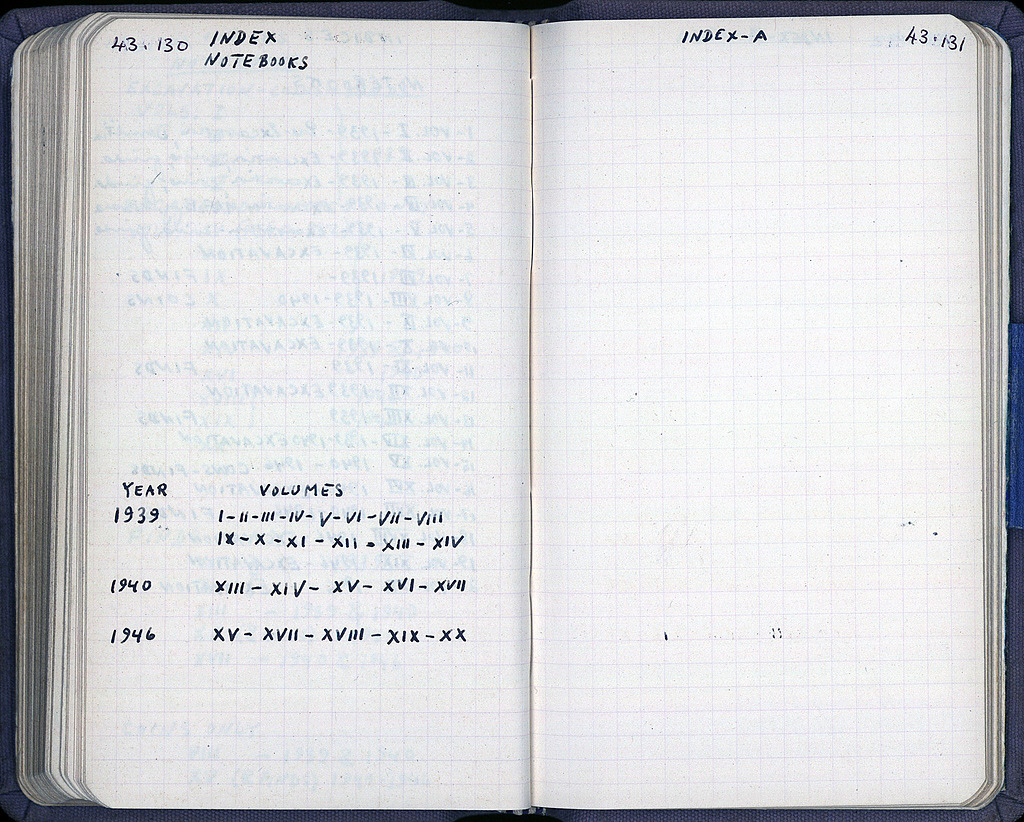 43·130 INDEX
NOTEBOOKS
YEAR VOLUMES
1939 I-II-III-IV-V-VI-VII-VIII
IX-X-XI-XII-XIII-XIV
1940 XIII-XIV-XV-XVI-XVII
1946 XV-XVII-XVIII-XIX-XX
INDEX-A 43·131